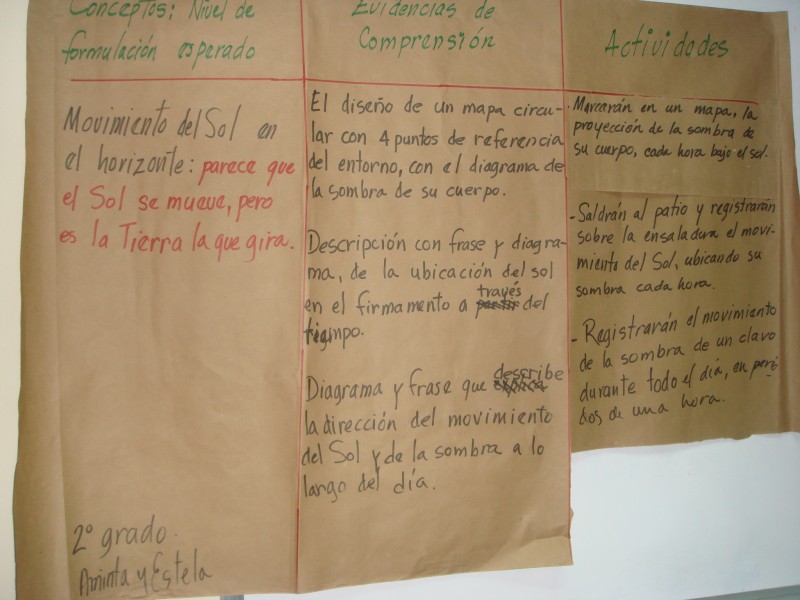 Conceptos: Nivel de
formulación esperado
Movimiento del Sol en
el horizonte: parece que
el Sol se mueve, pero
es la Tierra la que gira.
2º grado.
Aminta y Estela
Evidencias de
Comprensión
El diseño de un mapa circu-
lar con 4 puntos de referencia
del entorno, con el diagrama de
la sombra de su cuerpo.
Descripción con frase y diagra-
ma, de la ubicación del sol
en el firmamento a través del
tiempo.
Diagrama y frase que describe
la dirección del movimiento
del Sol y de la sombra a lo
largo del día.
Actividades
- Marcarán en un mapa, la
proyección de la sombra de
su cuerpo, cada hora bajo el sol.
- Saldrán al patio y registrarán
sobre la ensaladura el movi-
miento del Sol, ubicando su
sombra cada hora.
- Registrarán el movimiento
de la sombra de un clavo
durante todo el día, en perí
dos de una hora.